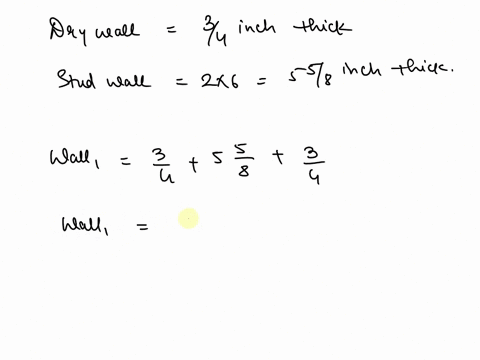 Dry wall = 3/4 inch thick
Stud wall = 2x6 = 5 5/8 inch thick.
Wall₁ = 3/4 + 5 5/8 + 3/4
Wall₁ =